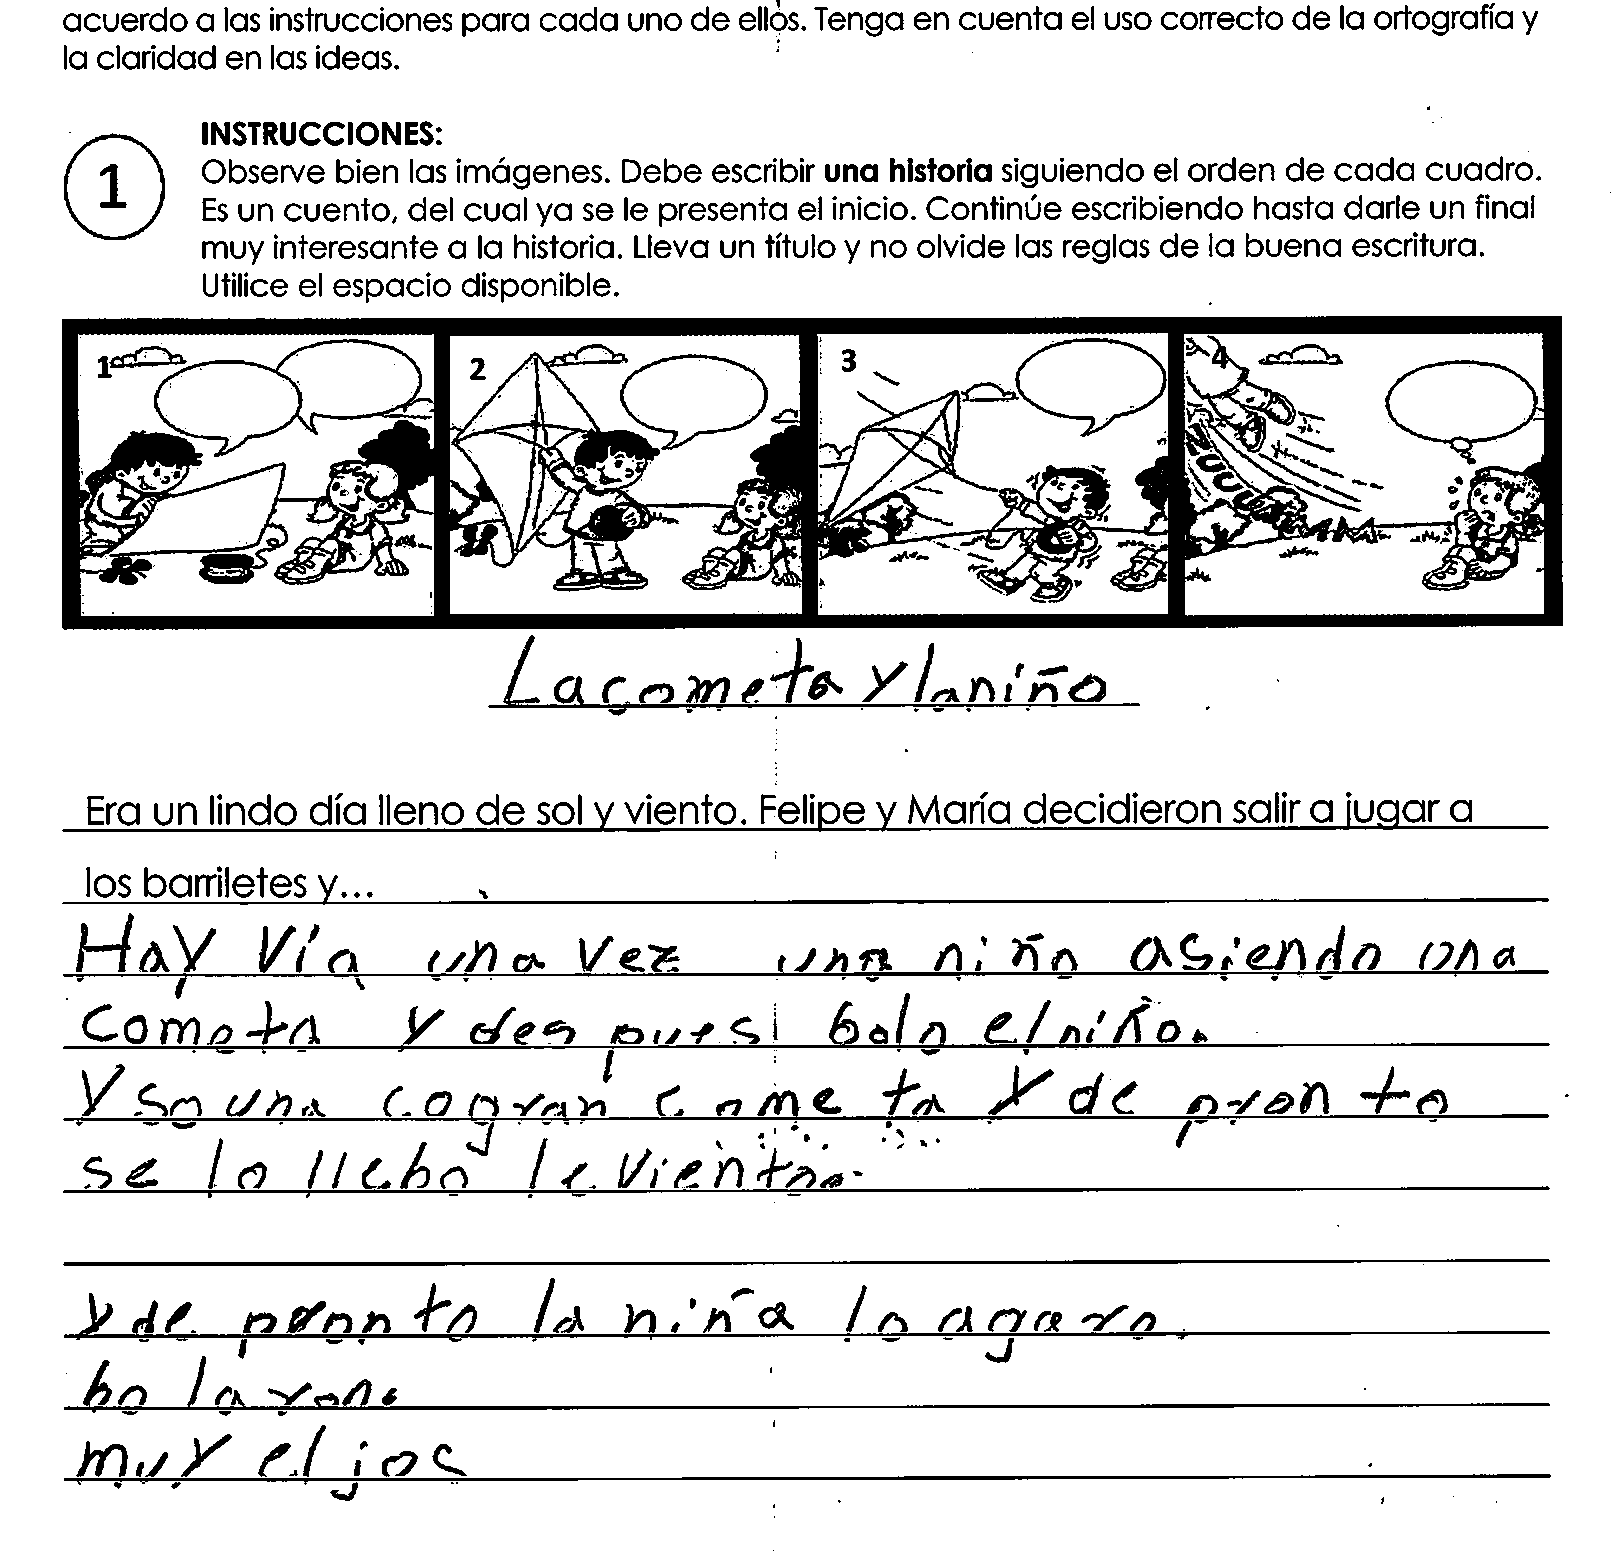 acuerdo a las instrucciones para cada uno de ellos. Tenga en cuenta el uso correcto de la ortografía y
la claridad en las ideas.
1
INSTRUCCIONES:
Observe bien las imágenes. Debe escribir una historia siguiendo el orden de cada cuadro.
Es un cuento, del cual ya se le presenta el inicio. Continúe escribiendo hasta darle un final
muy interesante a la historia. Lleva un título y no olvide las reglas de la buena escritura.
Utilice el espacio disponible.
1 2 3 4
La cometa y la niño
Era un lindo día lleno de sol y viento. Felipe y María decidieron salir a jugar a
los barriletes y...
Hay vía una vez una niño asiendo una
cometa y des pues bolo el niño.
Y so una co gran cometa y de pron to
se lo llebo le viento.
y de pronto la niña lo agaro.
bo la ron.
muy el jos